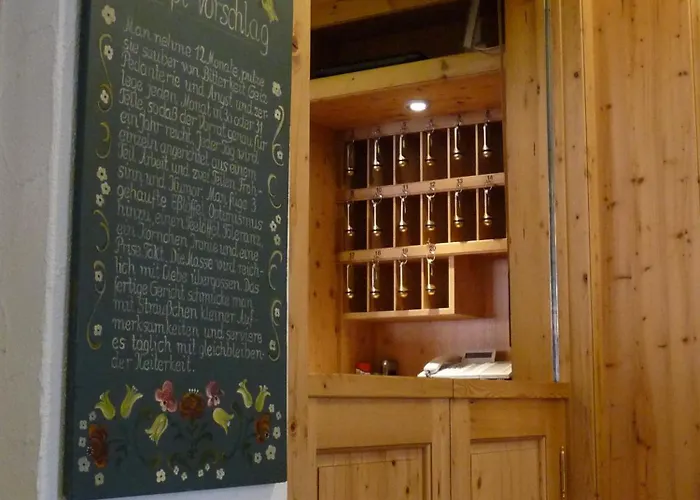 Vorschlag
Man nehme 12 Monate, putze
sie sauber von Bitterkeit, Geiz
Pedanterie und Angst und zer
lege jeden Monat in 30 oder 31
Teile, sodaß der Vorrat genau für
ein Jahr reicht. Jeder Tag wird
einzeln angerichtet aus einem
Teil Arbeit und zwei Teilen Froh-
sinn und Humor. Man füge 3
gehäufte Eßlöffel Optimismus
hinzu, einen Teelöffel Toleranz,
ein Körnchen Ironie und eine
Prise Takt. Die Masse wird reich-
lich mit Liebe übergossen. Das
fertige Gericht schmücke man
mit Sträußchen kleiner Auf
merksamkeiten und serviere
es täglich mit gleichbleiben-
der Heiterkeit.